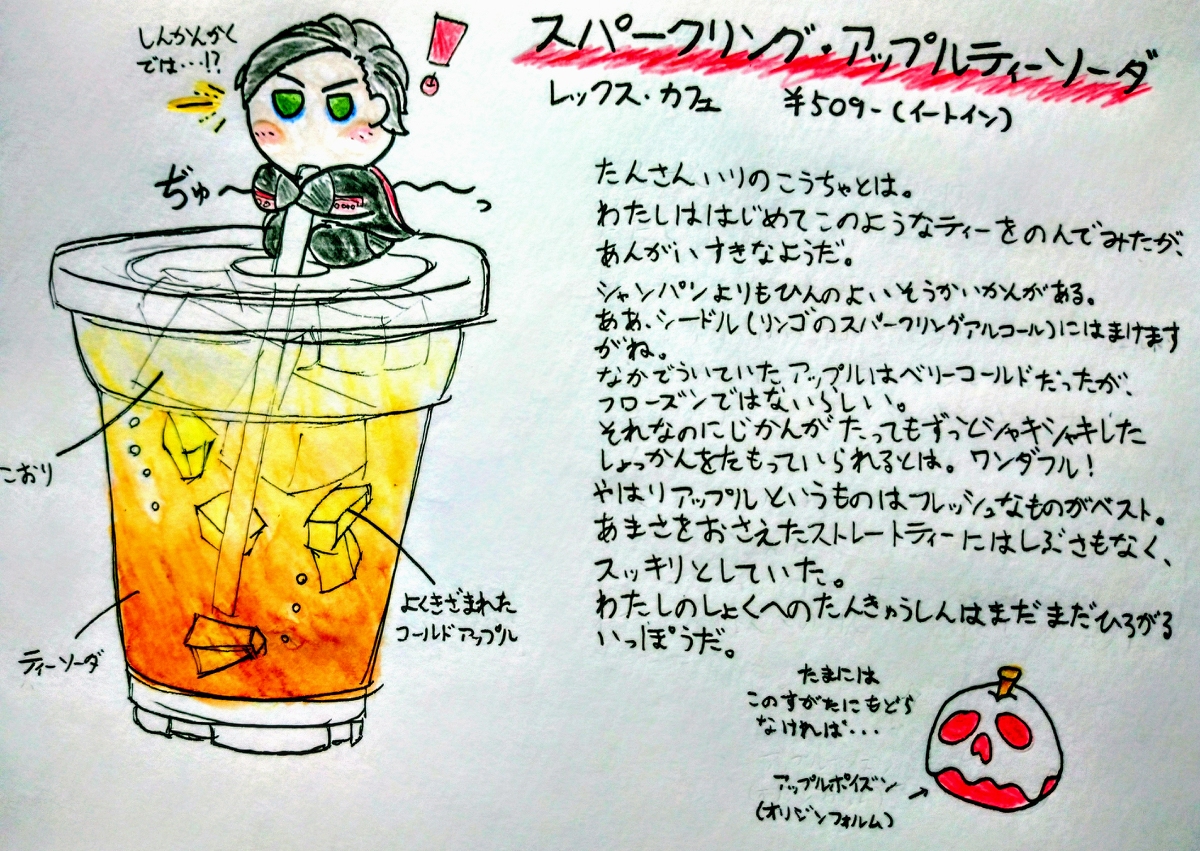 スパークリング・アップルティーソーダ
レックス・カフェ ¥509-(イートイン)
しんかんかく
では・・・!?
ぢゅ〜
たんさんいりのこうちゃとは。
わたしははじめてこのようなティーをのんでみたが、
あんがいすきなようだ。
シャンパンよりもひんのよいそうかいかんがある。
ああ、シードル(リンゴのスパークリングアルコール)にはまけます
がね。
なかでういていたアップルはベリーコールドだったが、
フローズンではないらしい。
それなのにじかんがたってもずっとシャキシャキした
しょっかんをたもっていられるとは。ワンダフル!
やはりアップルというものはフレッシュなものがベスト。
あまさをおさえたストレートティーにはしぶさもなく、
スッキリとしていた。
わたしのしょくへのたんきゅうしんはまだまだひろがる
いっぽうだ。
こおり
よくきざまれた
コールドアップル
ティーソーダ
たまには
このすがたにもどら
なければ・・・
アップルポイズン
(オリジンフォルム)